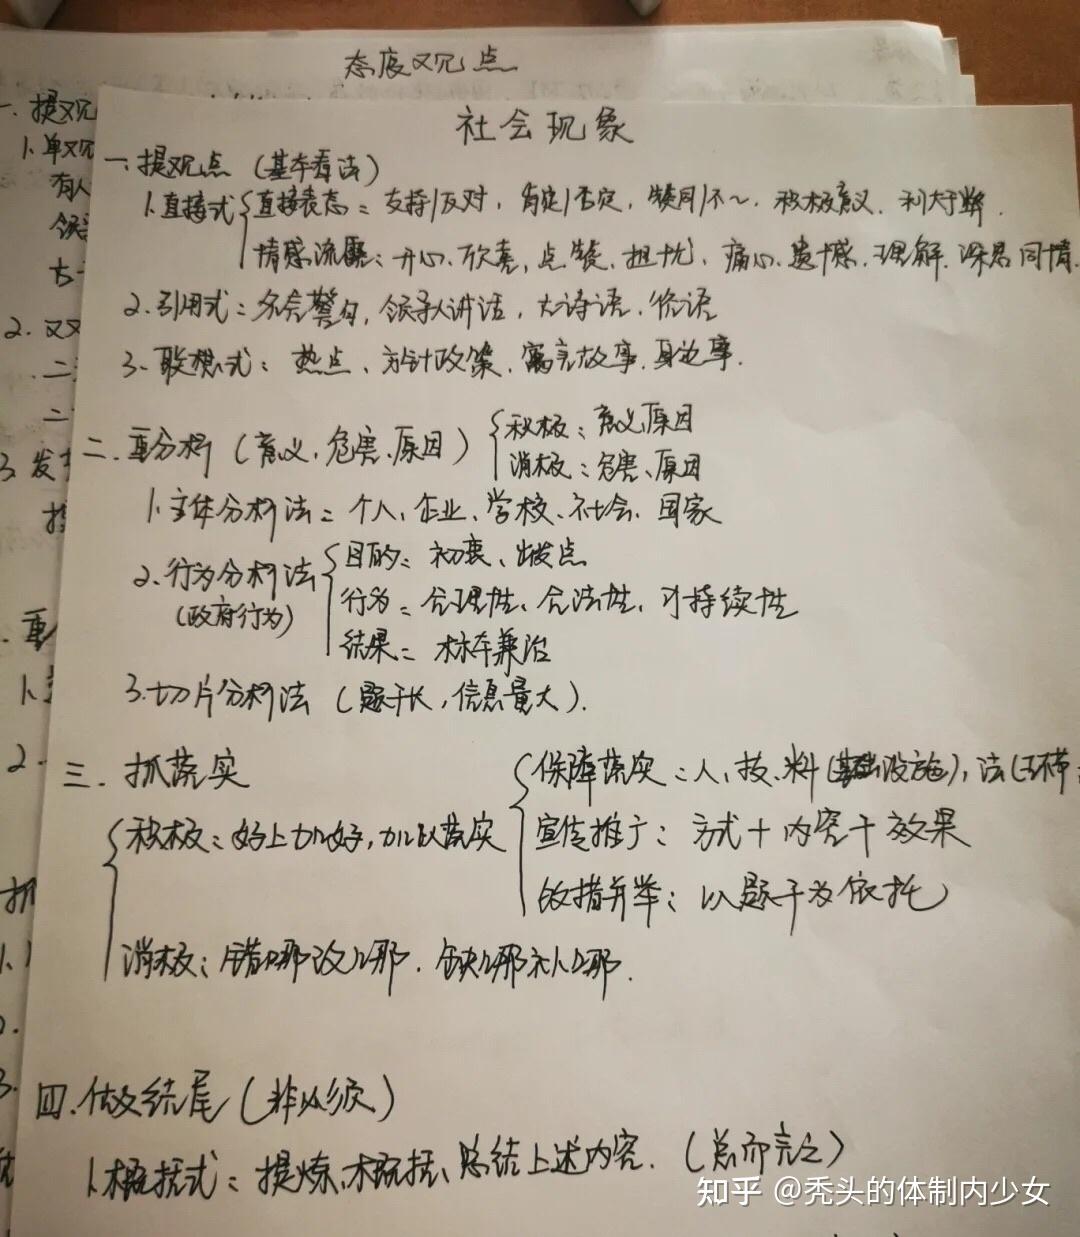 态度观点
社会现象
一、提观点（基本看法）
1.直接式
直接表态：支持/反对，肯定/否定，赞同/不~，积极意义、利大于弊.
情感流露：开心、欣喜、点赞、担忧、痛心、遗憾、理解、深思、同情.
2.引用式：名言警句，领导人讲话，古诗语、俗语
3.联想式：热点、方针政策、寓言故事、身边事.
二.重分析（意义、危害、原因）
积极：意义、原因
消极：危害、原因
1.主体分析法：个人、企业、学校、社会、国家
2.行为分析法
（政府行为）
目的：初衷、出发点
行为：合理性、合法性、可持续性
结果：标本兼治
3.切片分析法（题干长，信息量大）.
三.抓落实
积极：好上加好，加以落实
保障落实：人、技、料（基础设施），法（环
宣传推广：方式+内容+效果
多措并举：以题干为依托
消极：错哪改哪.缺哪补哪.
四.做结尾（非必须）
1.概括式：提炼、概括、总结上述内容.（总而言之）
一.提观
1.单观
有人
2.双
二
二
3.发
重
1.
2.
抓
1.
2.
3.
知乎 @秃头的体制内少女